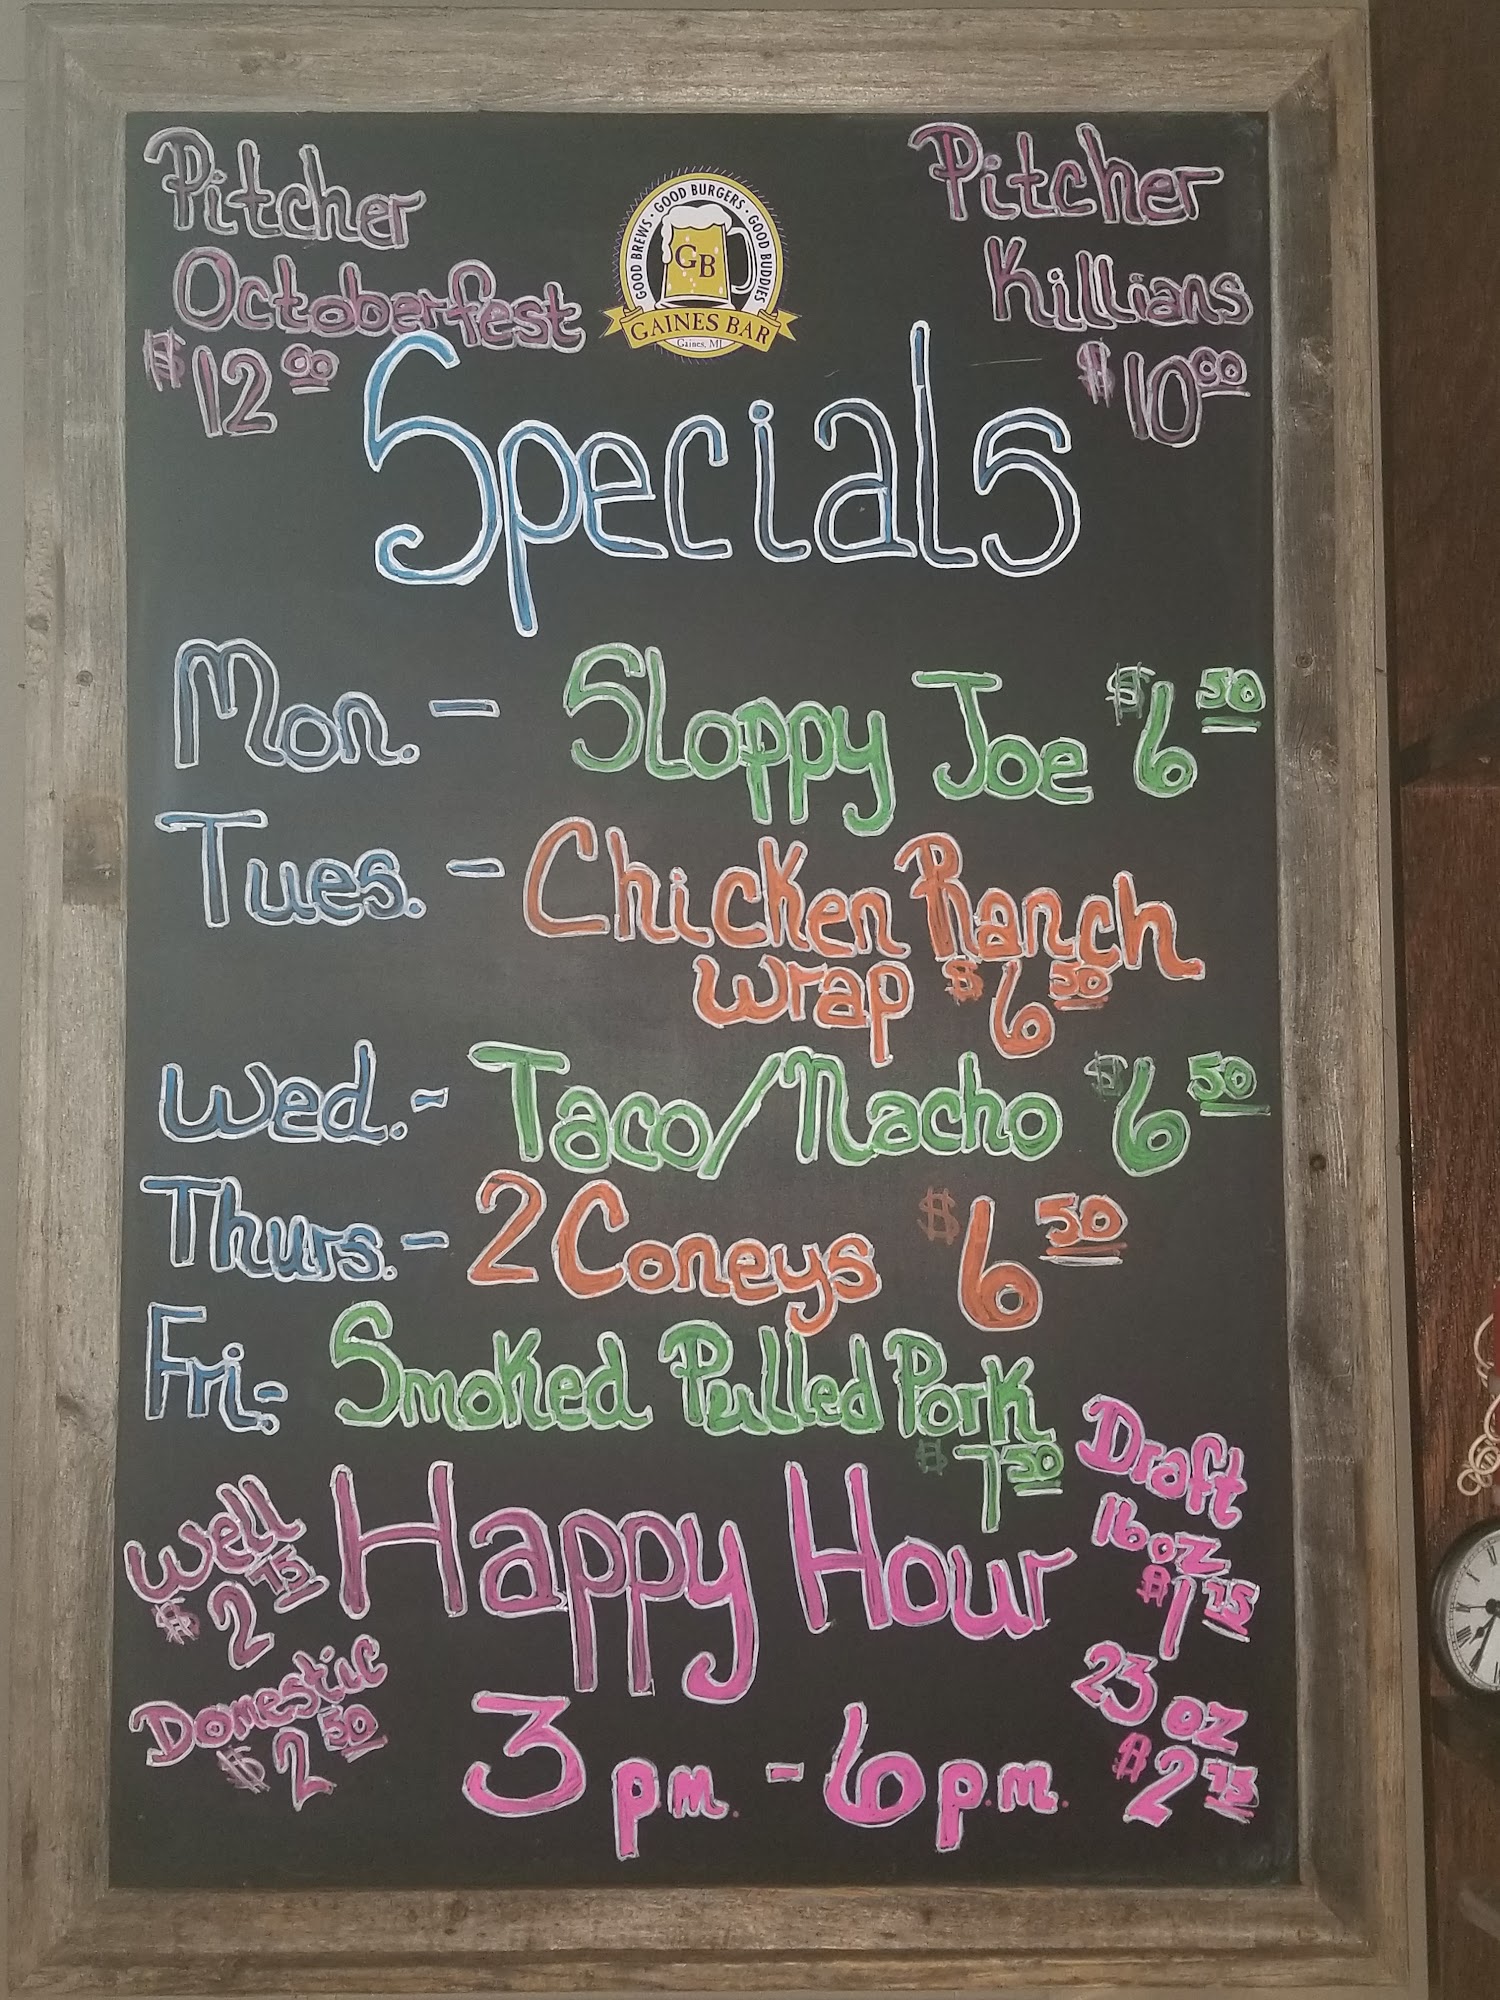 Pitcher
Octoberfest
$12.00
GOOD BREWS · GOOD BURGERS · GOOD BUDDIES
GB
GAINES BAR
Gaines, MI
Pitcher
Killians
$10.00
Specials
Mon. - Sloppy Joe $6 50
Tues. - Chicken Ranch
Wrap $6 50
Wed. - Taco/Nacho $6 50
Thurs. - 2 Coneys $6 50
Fri. - Smoked Pulled Pork
$7 50
Well
$2 75
Domestic
$2 50
Happy Hour
3 p.m. - 6 p.m.
Draft
16 oz
$1 75
23 oz
$2 75